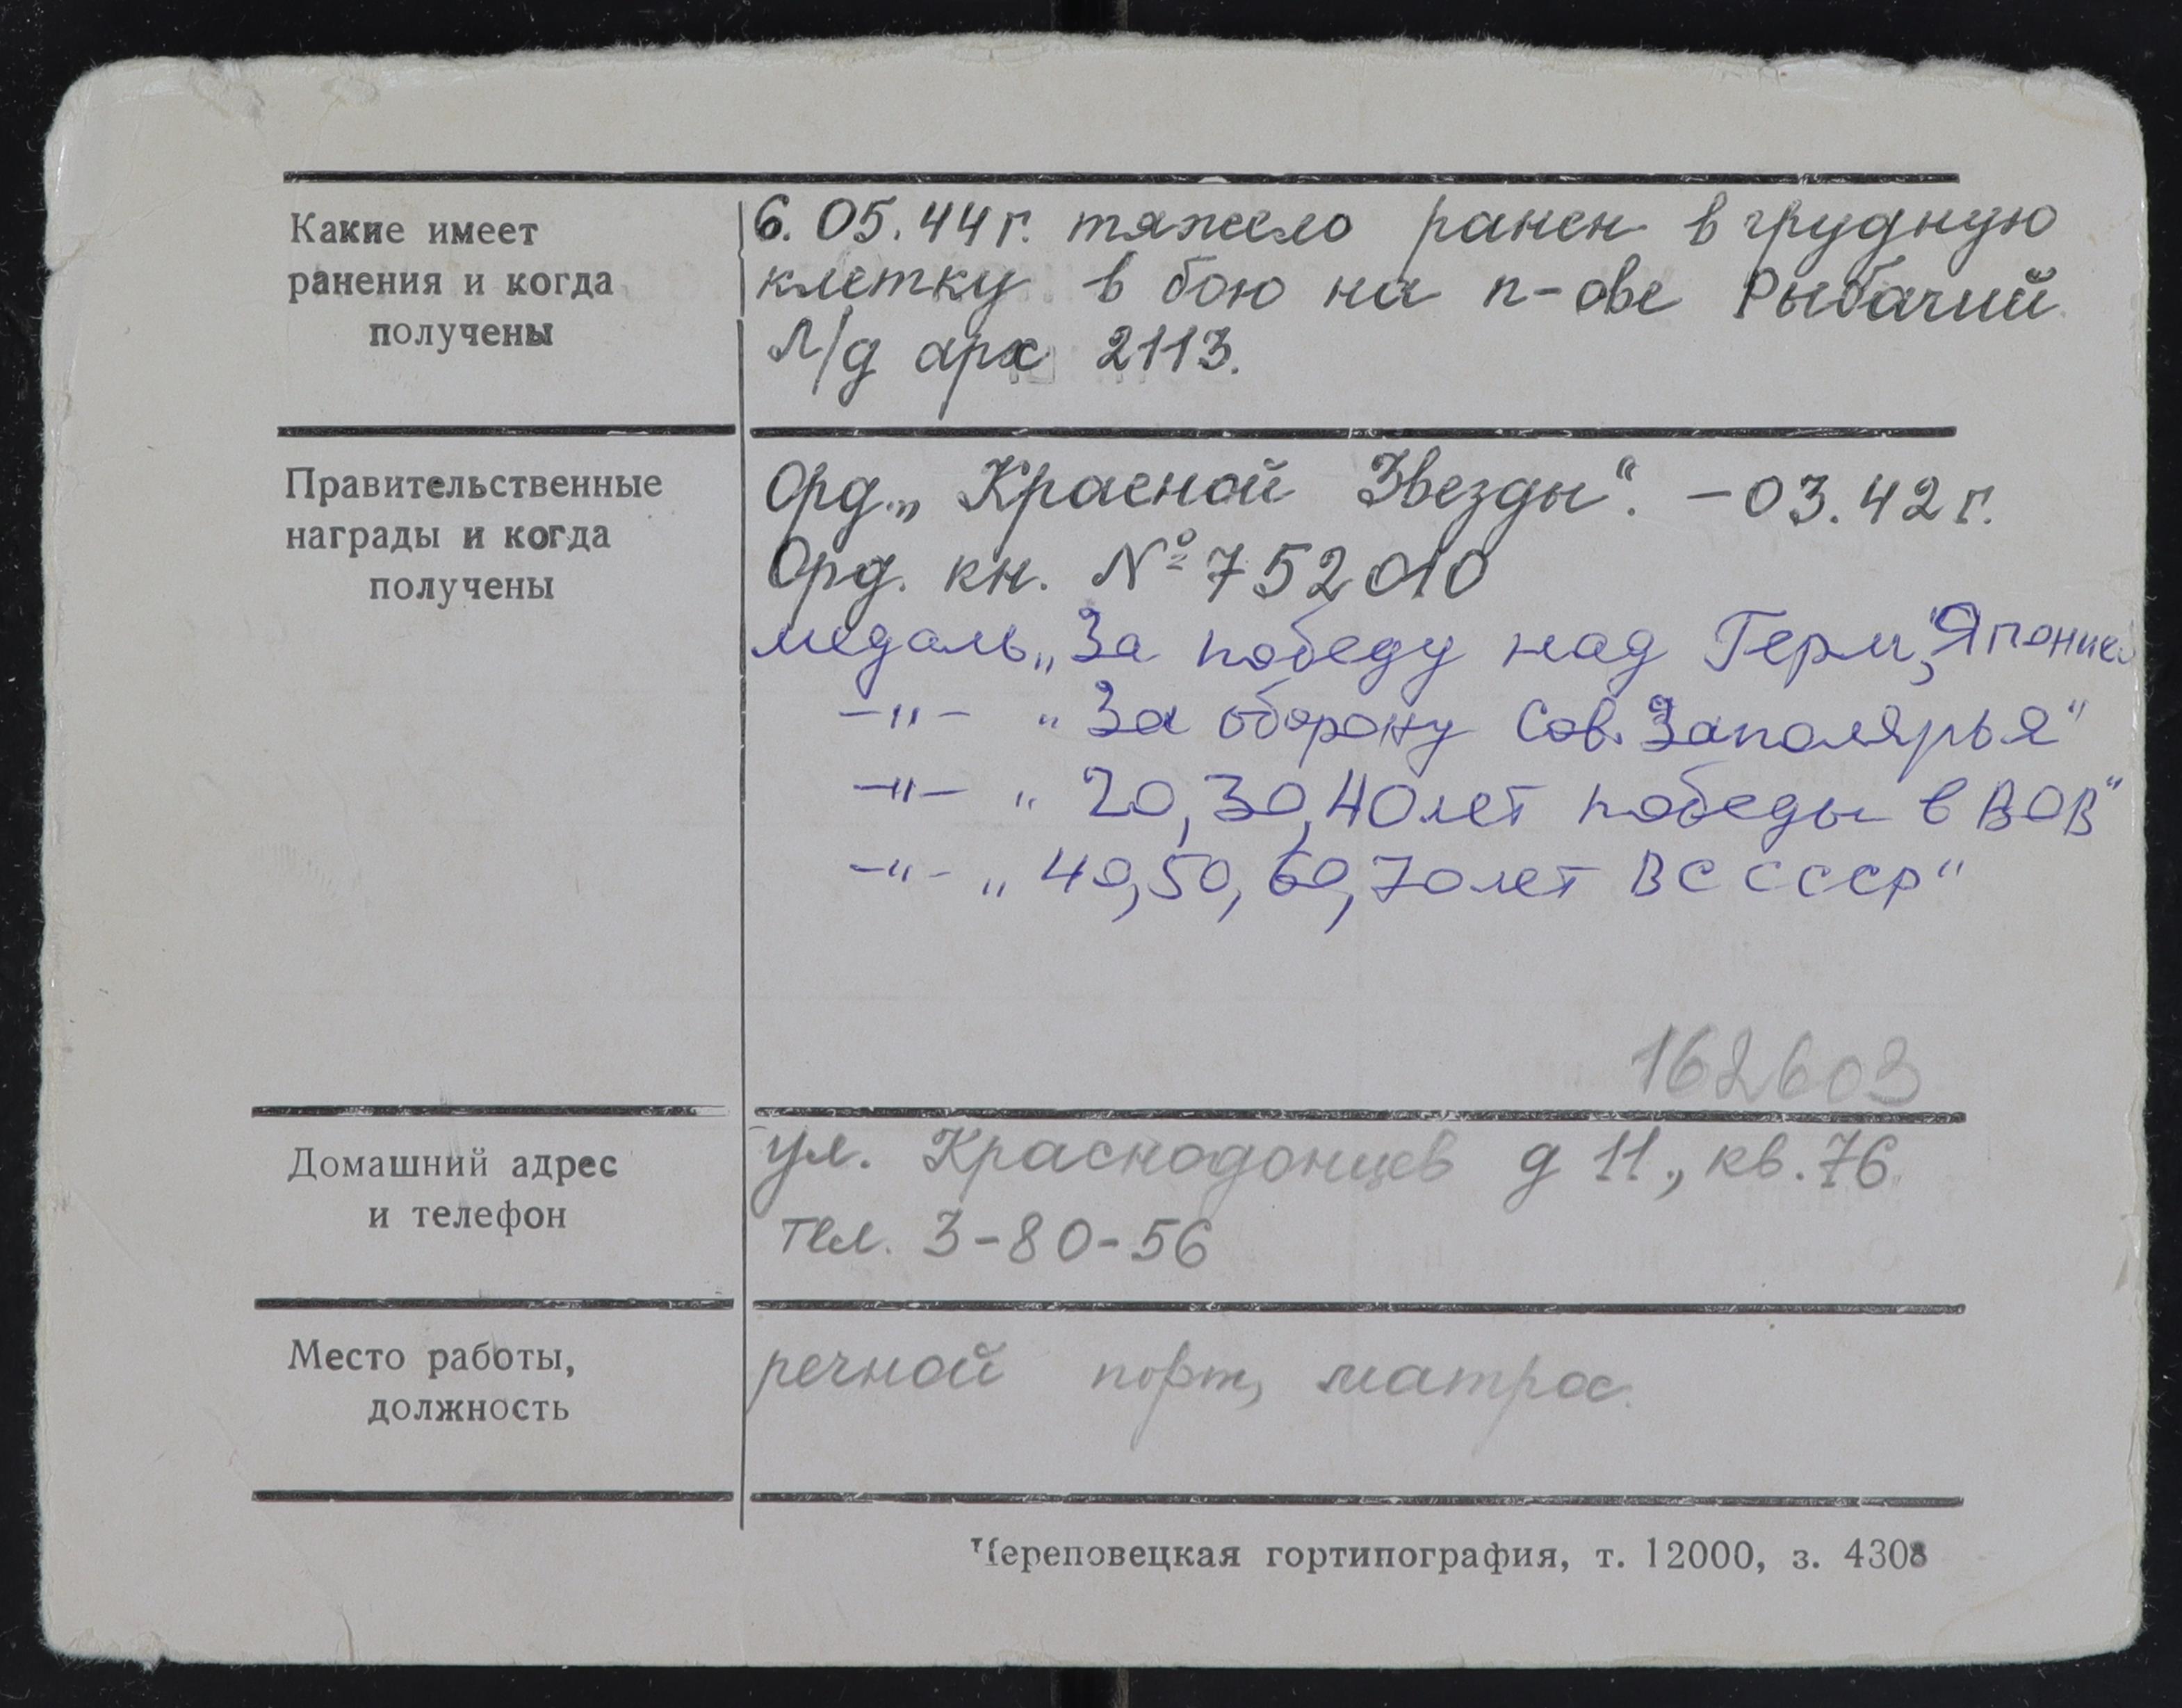 Какие имеет
ранения и когда
получены
6. 05. 44 г. тяжело ранен в грудную
клетку в бою на п-ове Рыбачий.
Л/д арх 2113.
Правительственные
награды и когда
получены
Орд. „Красной Звезды“. - 03. 42 г.
Орд. кн. № 752010
медаль „За победу над Герм, Японией
-"- „За оборону Сов. Заполярья“
-"- „20, 30, 40 лет победы в ВОВ“
-"- „40, 50, 60, 70 лет ВС СССР“
162603
Домашний адрес
и телефон
ул. Краснодонцев д 11., кв. 76.
тел. 3-80-56
Место работы,
должность
речной порт, матрос.
Череповецкая гортипография, т. 12000, з. 4308